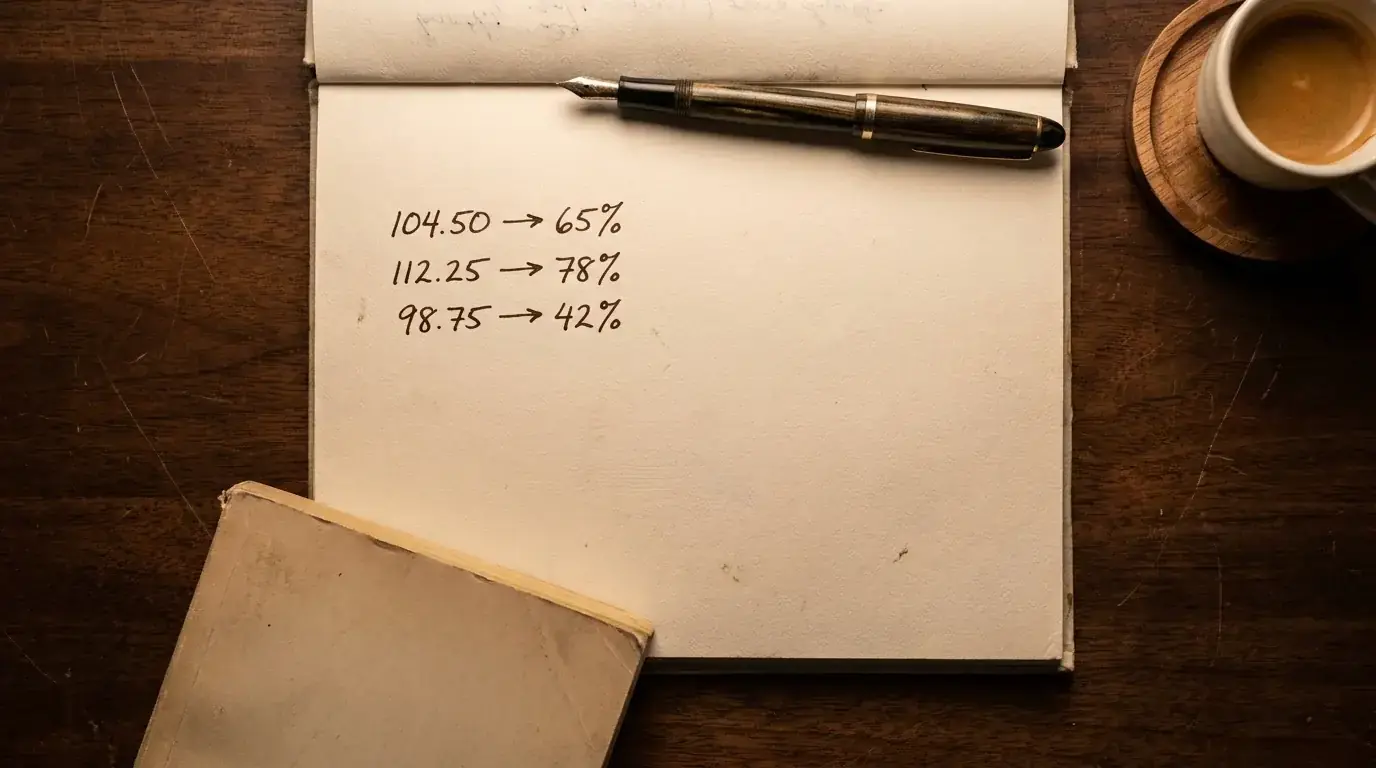 104.50 → 65%
112.25 → 78%
98.75 → 42%